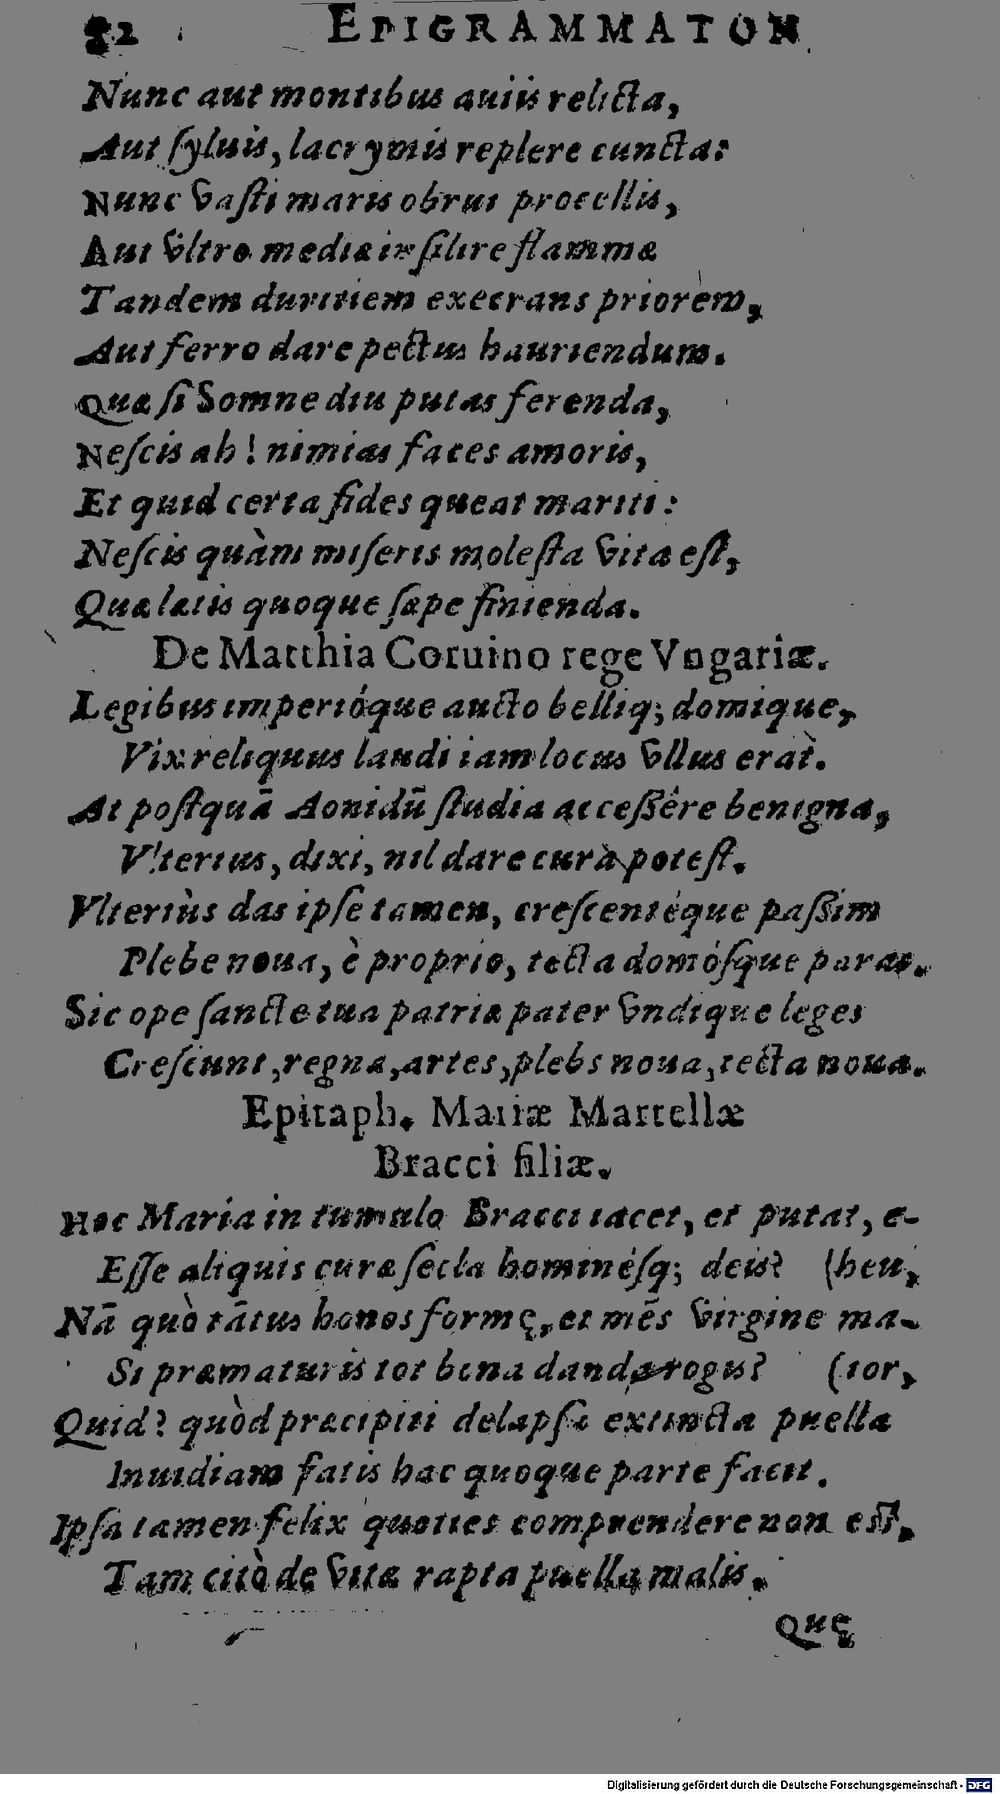 82 EPIGRAMMATON
Nunc aut montibus auiis relicta,
Aut syluis, lacrymis replere cuncta:
Nunc vasti maris obrui procellis,
Aut vltro mediæ insilire flammæ
Tandem duritiem execrans priorem,
Aut ferro dare pectus hauriendum.
Quæ si Somne diu putas ferenda,
Nescis ah! nimias faces amoris,
Et quid certa fides queat mariti:
Nescis quàm miseris molesta vita est,
Quæ lætis quoque sæpe finienda.
De Matthia Coruino rege Vngariæ.
Legibus imperióque aucto belliq; domique,
Vix reliquus laudi iam locus vllus erat.
At postquā Aonidū studia accessêre benigna,
Vlterius, dixi, nil dare cura potest.
Vlteriùs das ipse tamen, crescentéque passim
Plebe noua, è proprio, tecta domósque paras.
Sic ope sancte tua patriæ pater vndique leges
Crescunt, regna, artes, plebs noua, tecta noua.
Epitaph. Mariæ Martellæ
Bracci filiæ.
Hoc Maria in tumulo Bracci iacet, et putat, e-
Esse aliquis curæ secla hominésq; deis? (heu,
Nā quò tātus honos formę, et mēs virgine ma-
Si præmaturis tot bona danda rogis? (ior,
Quid? quòd præcipiti delapsa extincta puella
Inuidiam fatis hac quoque parte facit.
Ipsa tamen felix quoties comprendere non est,
Tam citò de vitæ rapta puella malis.
Quę
Digitalisierung gefördert durch die Deutsche Forschungsgemeinschaft - DFG